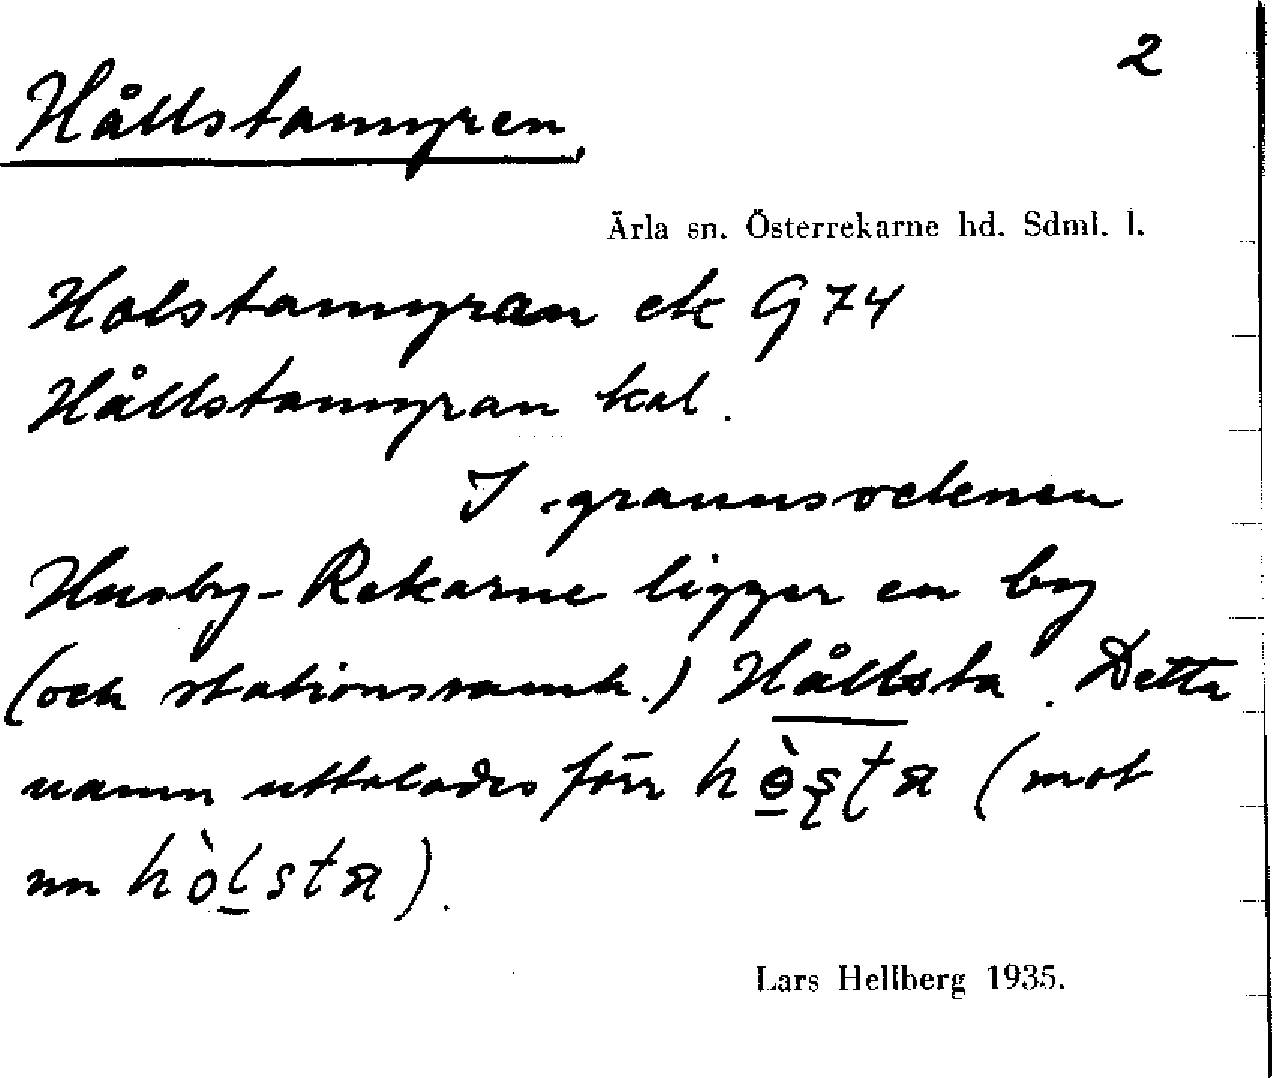 2
Hållstamyren,
Ärla sn. Österrekarne hd. Sdml. l.
Holstamyran ek G 74
Hållstamyran kal.
I grannsocknen
Husby-Rekarne ligger en by
(och stationssamh.) Hållsta. Detta
namn uttalades förr (mot
nu hòlsta).
Lars Hellberg 1935.